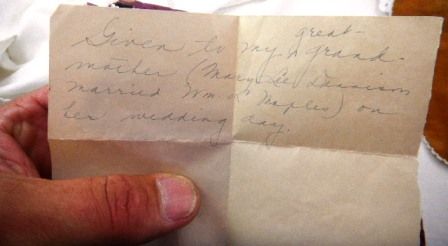 great-
Given to my grand-
mother (Mary
married Wm Maples) on
her wedding day.